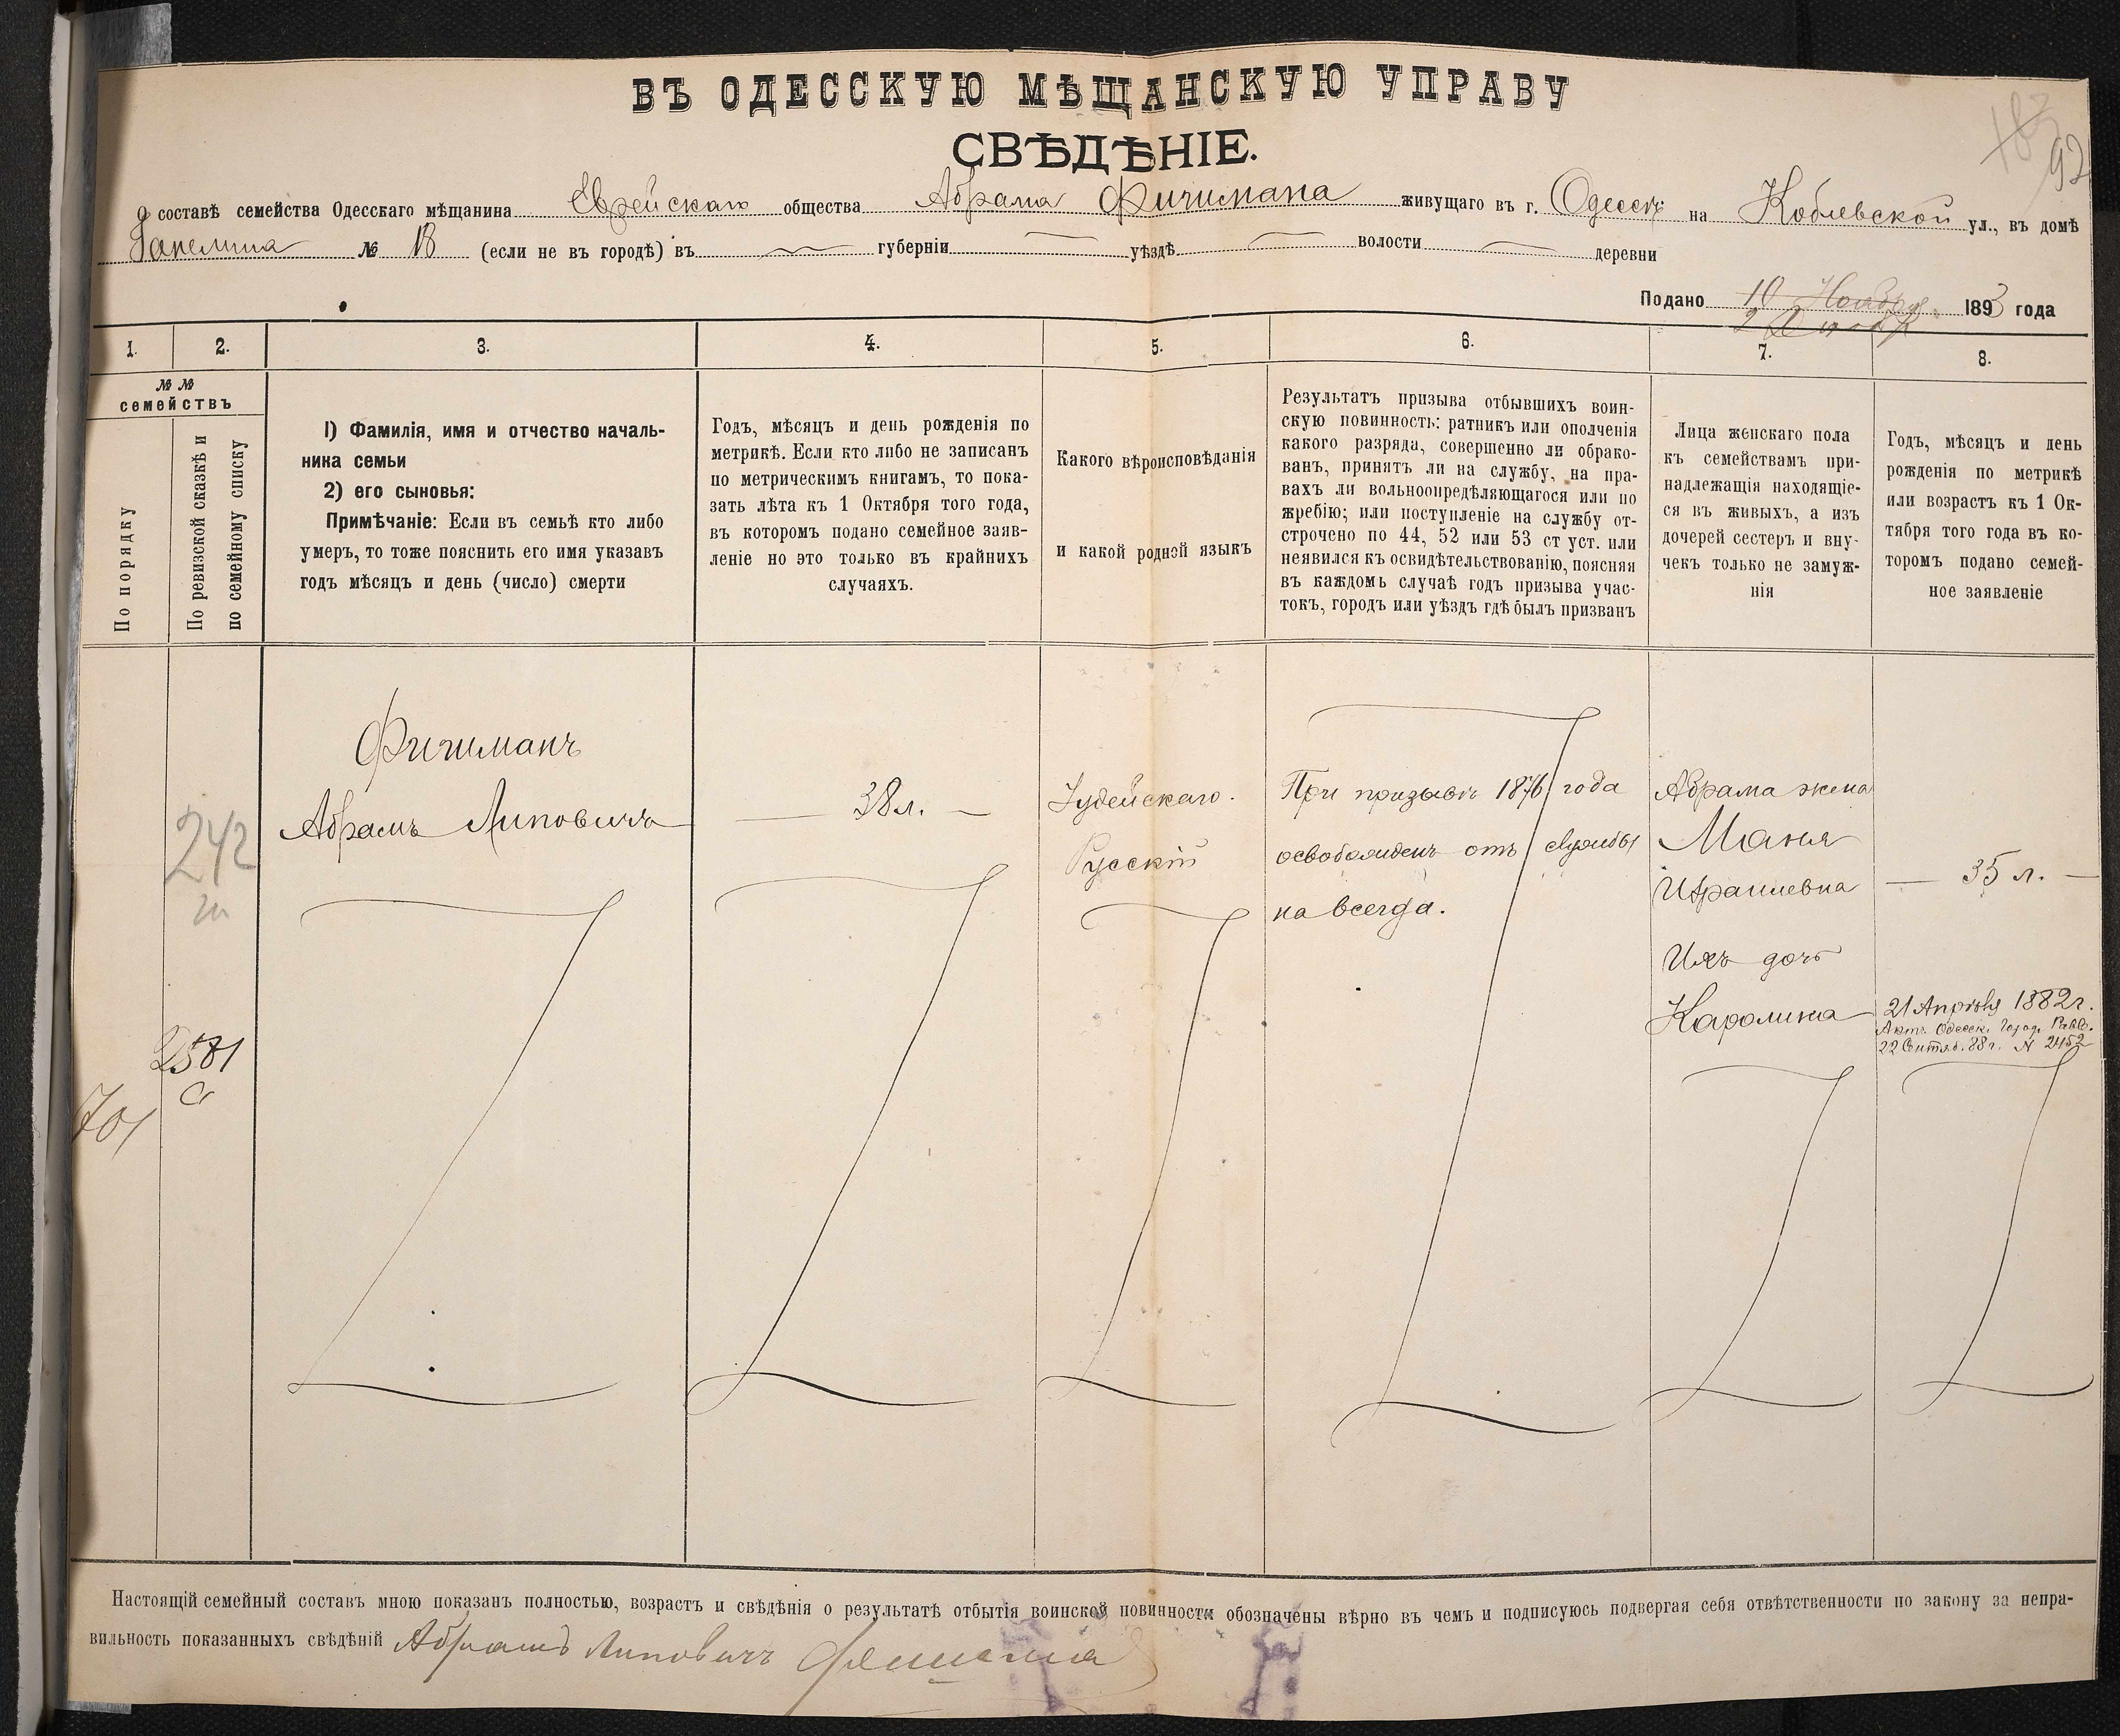 ВЪ ОДЕССКУЮ МѢЩАНСКУЮ УПРАВУ
СВѢДѢНІЕ.
92
О составѣ семейства Одесскаго мѣщанина Еврейскаго общества Абрама Фичимана живущаго въ г. Одессѣ на Коблевской ул., въ домѣ
№ 13 (если не въ городѣ) въ губерніи уѣздѣ волости деревни
Подано 10 Ноября 1893 года
1. 2. 3. 4. 5. 6. 7. 8.
№ №
семействъ
По порядку
По ревизской сказкѣ и
по семейному списку
1) Фамилія, имя и отчество началь-
ника семьи
2) его сыновья:
Примѣчаніе: Если въ семьѣ кто либо
умеръ, то тоже пояснить его имя указавъ
годъ мѣсяцъ и день (число) смерти
Годъ, мѣсяцъ и день рожденія по
метрикѣ. Если кто либо не записанъ
по метрическимъ книгамъ, то пока-
зать лѣта къ 1 Октября того года,
въ которомъ подано семейное заяв-
леніе но это только въ крайнихъ
случаяхъ.
Какого вѣроисповѣданія
и какой родной языкъ
Результатъ призыва отбывшихъ воин-
скую повинность: ратникъ или ополченія
какого разряда, совершенно ли обрако-
ванъ, принятъ ли на службу, на пра-
вахъ ли вольноопредѣляющагося или по
жребію; или поступленіе на службу от-
строчено по 44, 52 или 53 ст уст. или
неявился къ освидѣтельствованію, поясняя
въ каждомъ случаѣ годъ призыва учас-
токъ, городъ или уѣздъ гдѣ былъ призванъ
Лица женскаго пола
къ семействамъ при-
надлежащія находящіе-
ся въ живыхъ, а изъ
дочерей сестеръ и вну-
чекъ только не замуж-
нія
Годъ, мѣсяцъ и день
рожденія по метрикѣ
или возрастъ къ 1 Ок-
тября того года въ ко-
торомъ подано семей-
ное заявленіе
701
242
2581
Фичиманъ
Абрамъ Липовичъ
38 л.
Іудейскаго.
Русскій
При призывѣ 1876 года
освобожденъ отъ службы
на всегда.
Абрама жена
Маня
Израилевна
35 л.
Ихъ дочь
Каролина
21 Апрѣля 1882 г.
Актъ Одесск. Город. Равв.
22 Сентяб. 88 г. № 2452
Настоящій семейный составъ мною показанъ полностью, возрастъ и свѣдѣнія о результатѣ отбытія воинской повинности обозначены вѣрно въ чемъ и подписуюсь подвергая себя отвѣтственности по закону за непра-
вильность показанныхъ свѣдѣній Абрамъ Липовичъ